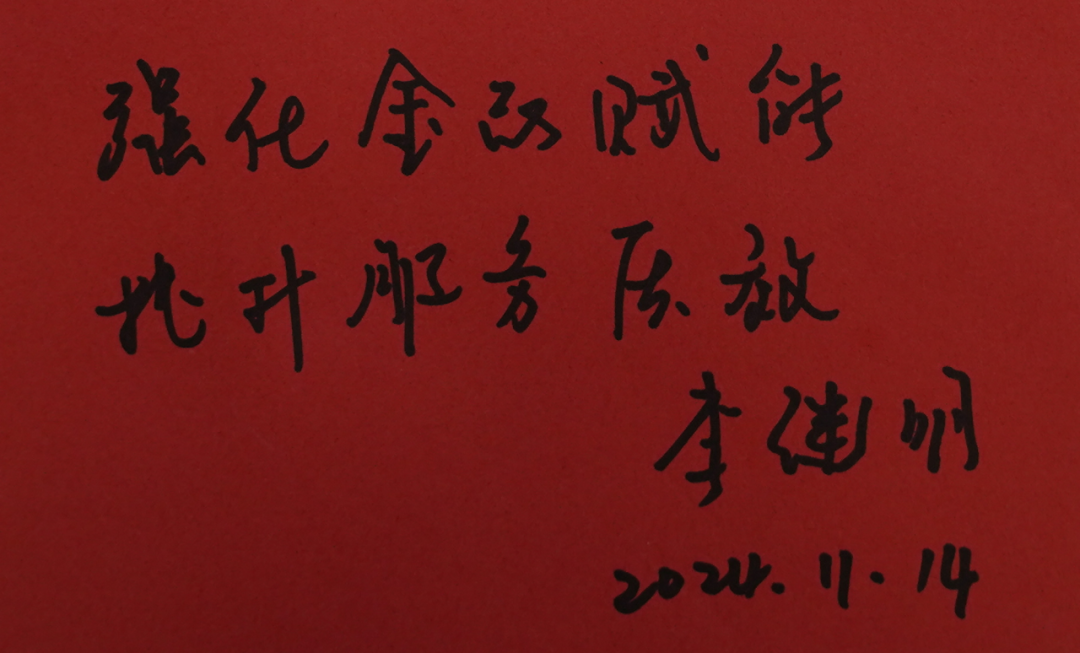 强化金融赋能
提升服务质效
李继明
2024.11.14